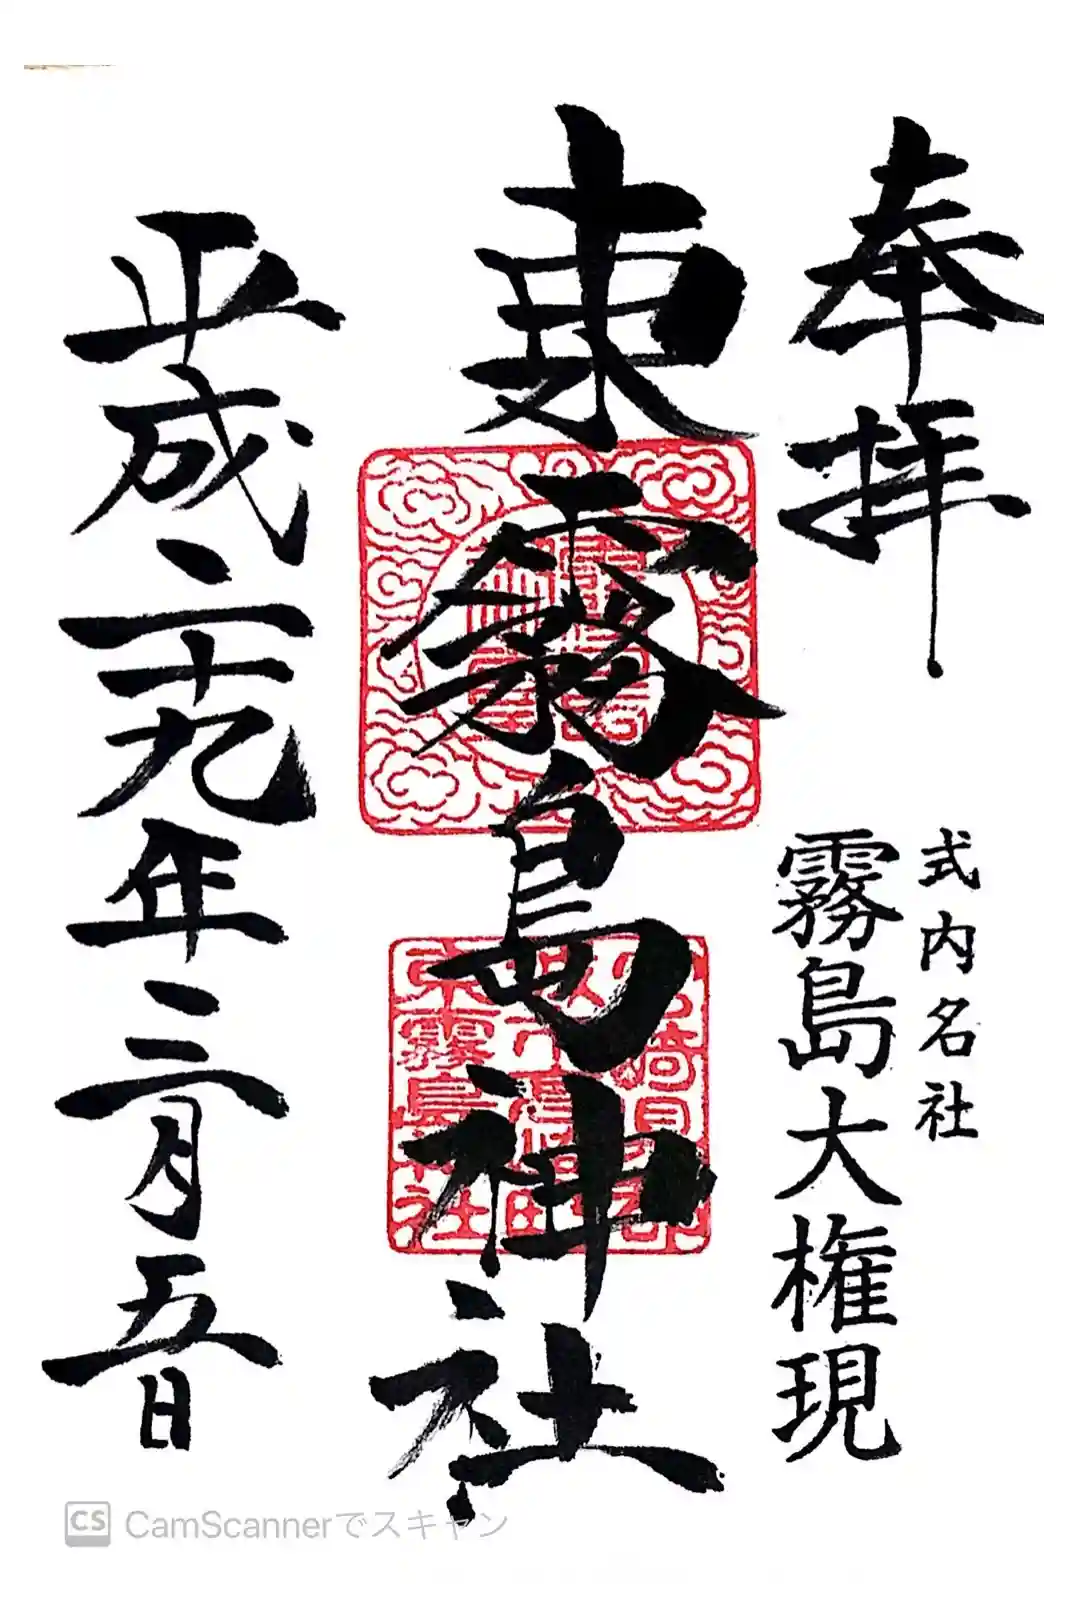 奉拝
式内名社
霧島大権現
東霧島神社
東霧島神社
平成二十九年三月五日
CS CamScannerでスキャン